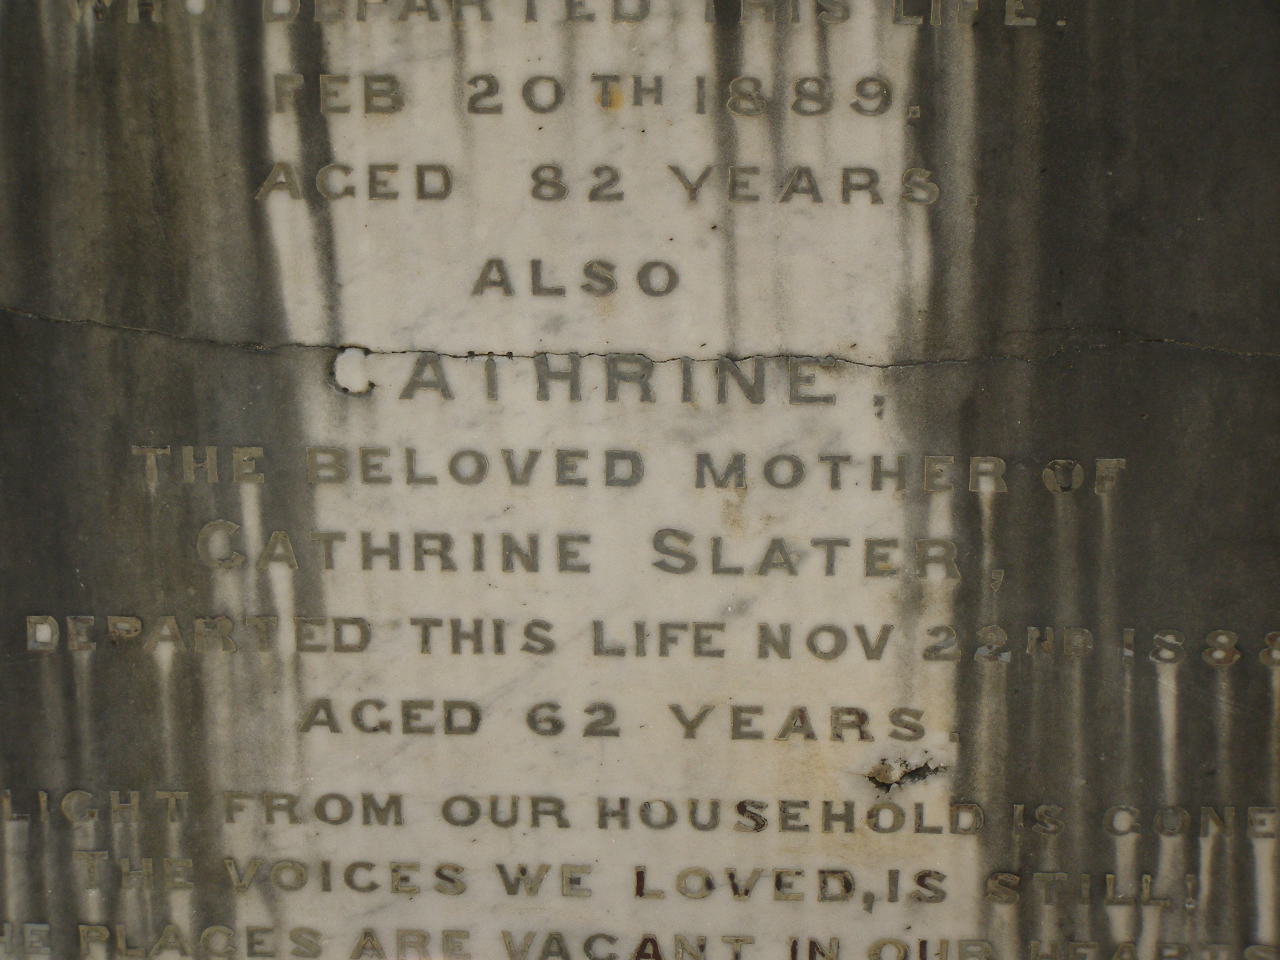 WHO DEPARTED THIS LIFE.
FEB 20TH 1889.
AGED 82 YEARS.
ALSO
CATHRINE,
THE BELOVED MOTHER OF
CATHRINE SLATER,
DEPARTED THIS LIFE NOV 22ND 188
AGED 62 YEARS.
LIGHT FROM OUR HOUSEHOLD IS GONE
THE VOICES WE LOVED, IS STILL!
HE PLACES ARE VACANT IN OUR HEARTS